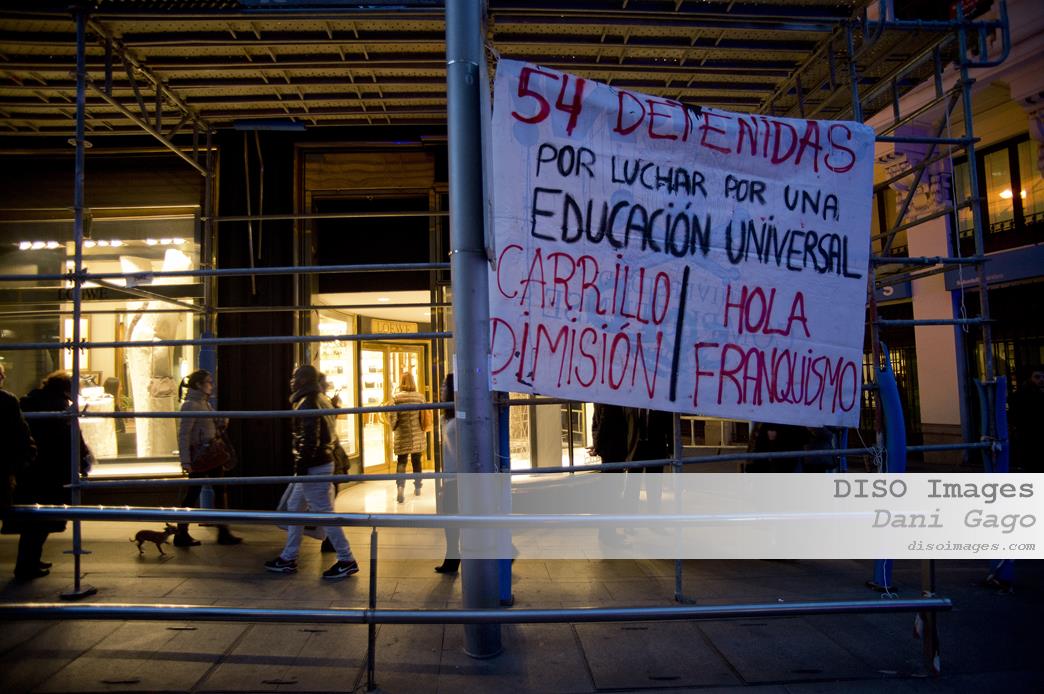 54 DETENIDAS
POR LUCHAR POR UNA
EDUCACIÓN UNIVERSAL
CARRILLO
DIMISIÓN
HOLA
FRANQUISMO
LOEWE
LOEWE
DISO Images
Dani Gago
disoimages.com